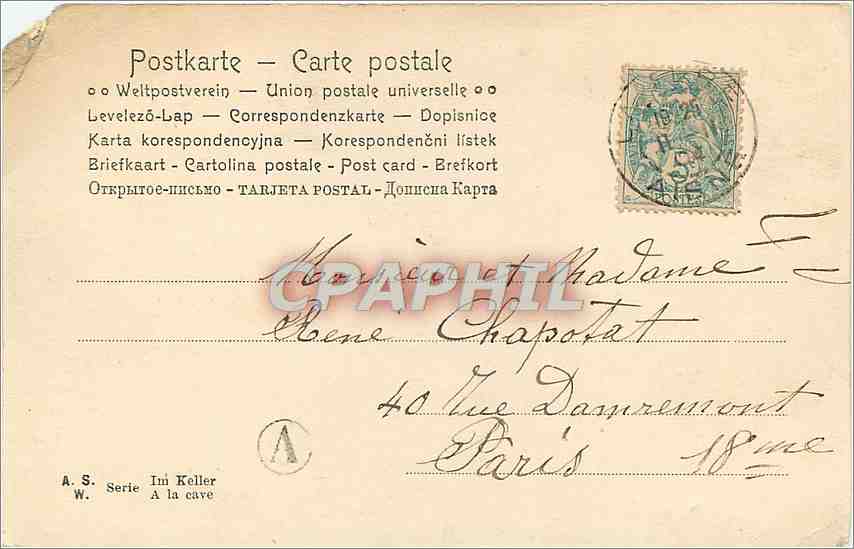 Postkarte — Carte postale
Weltpostverein — Union postale universelle
Levelező-Lap — Correspondenzkarte — Dopisnice
Karta korespondencyjna — Korespondenčni lístek
Briefkaart - Cartolina postale - Post card - Brefkort
Открытое-письмо - TARJETA POSTAL - Дописна Карта
POSTES
Monsieur et Madame
CPAPHIL
René Chapotat
40 Rue Damremont
Paris 18me
A
A. S. W. Serie Im Keller
A la cave